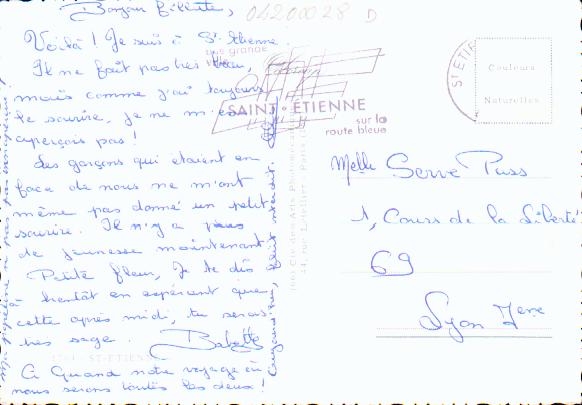 Bonjour
04200028 D
Voilà ! Je suis à St. Etienne.
Il ne fait pas très beau,
mais comme j'ai toujours
le sourire, je ne m'en
aperçois pas !
Les garçons qui étaient en
face de nous ne m'ont
même pas donné un petit
sourire. Il n'y a plus
de jeunesse maintenant.
Petite fleur, Je te dis
à bientôt en espérant que
cette après midi, tu seras
très sage. Babette
A Quand notre voyage où
nous serons toutes les deux !
une grande
ville
SAINT-ETIENNE
sur la
route bleue
ST-ETIE
Couleurs
Naturelles
Melle Serve Puss
1, Cours de la Liberté
69
Lyon 3eme
ST-ETIENNE